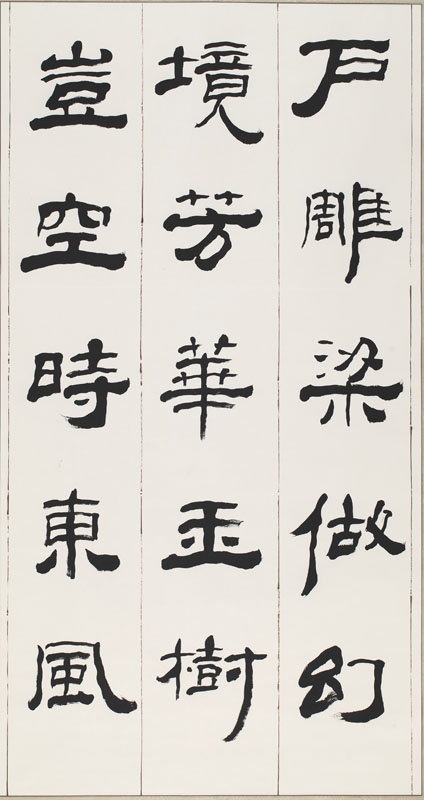 戶雕梁做幻
境芳華玉樹
豈空時東風